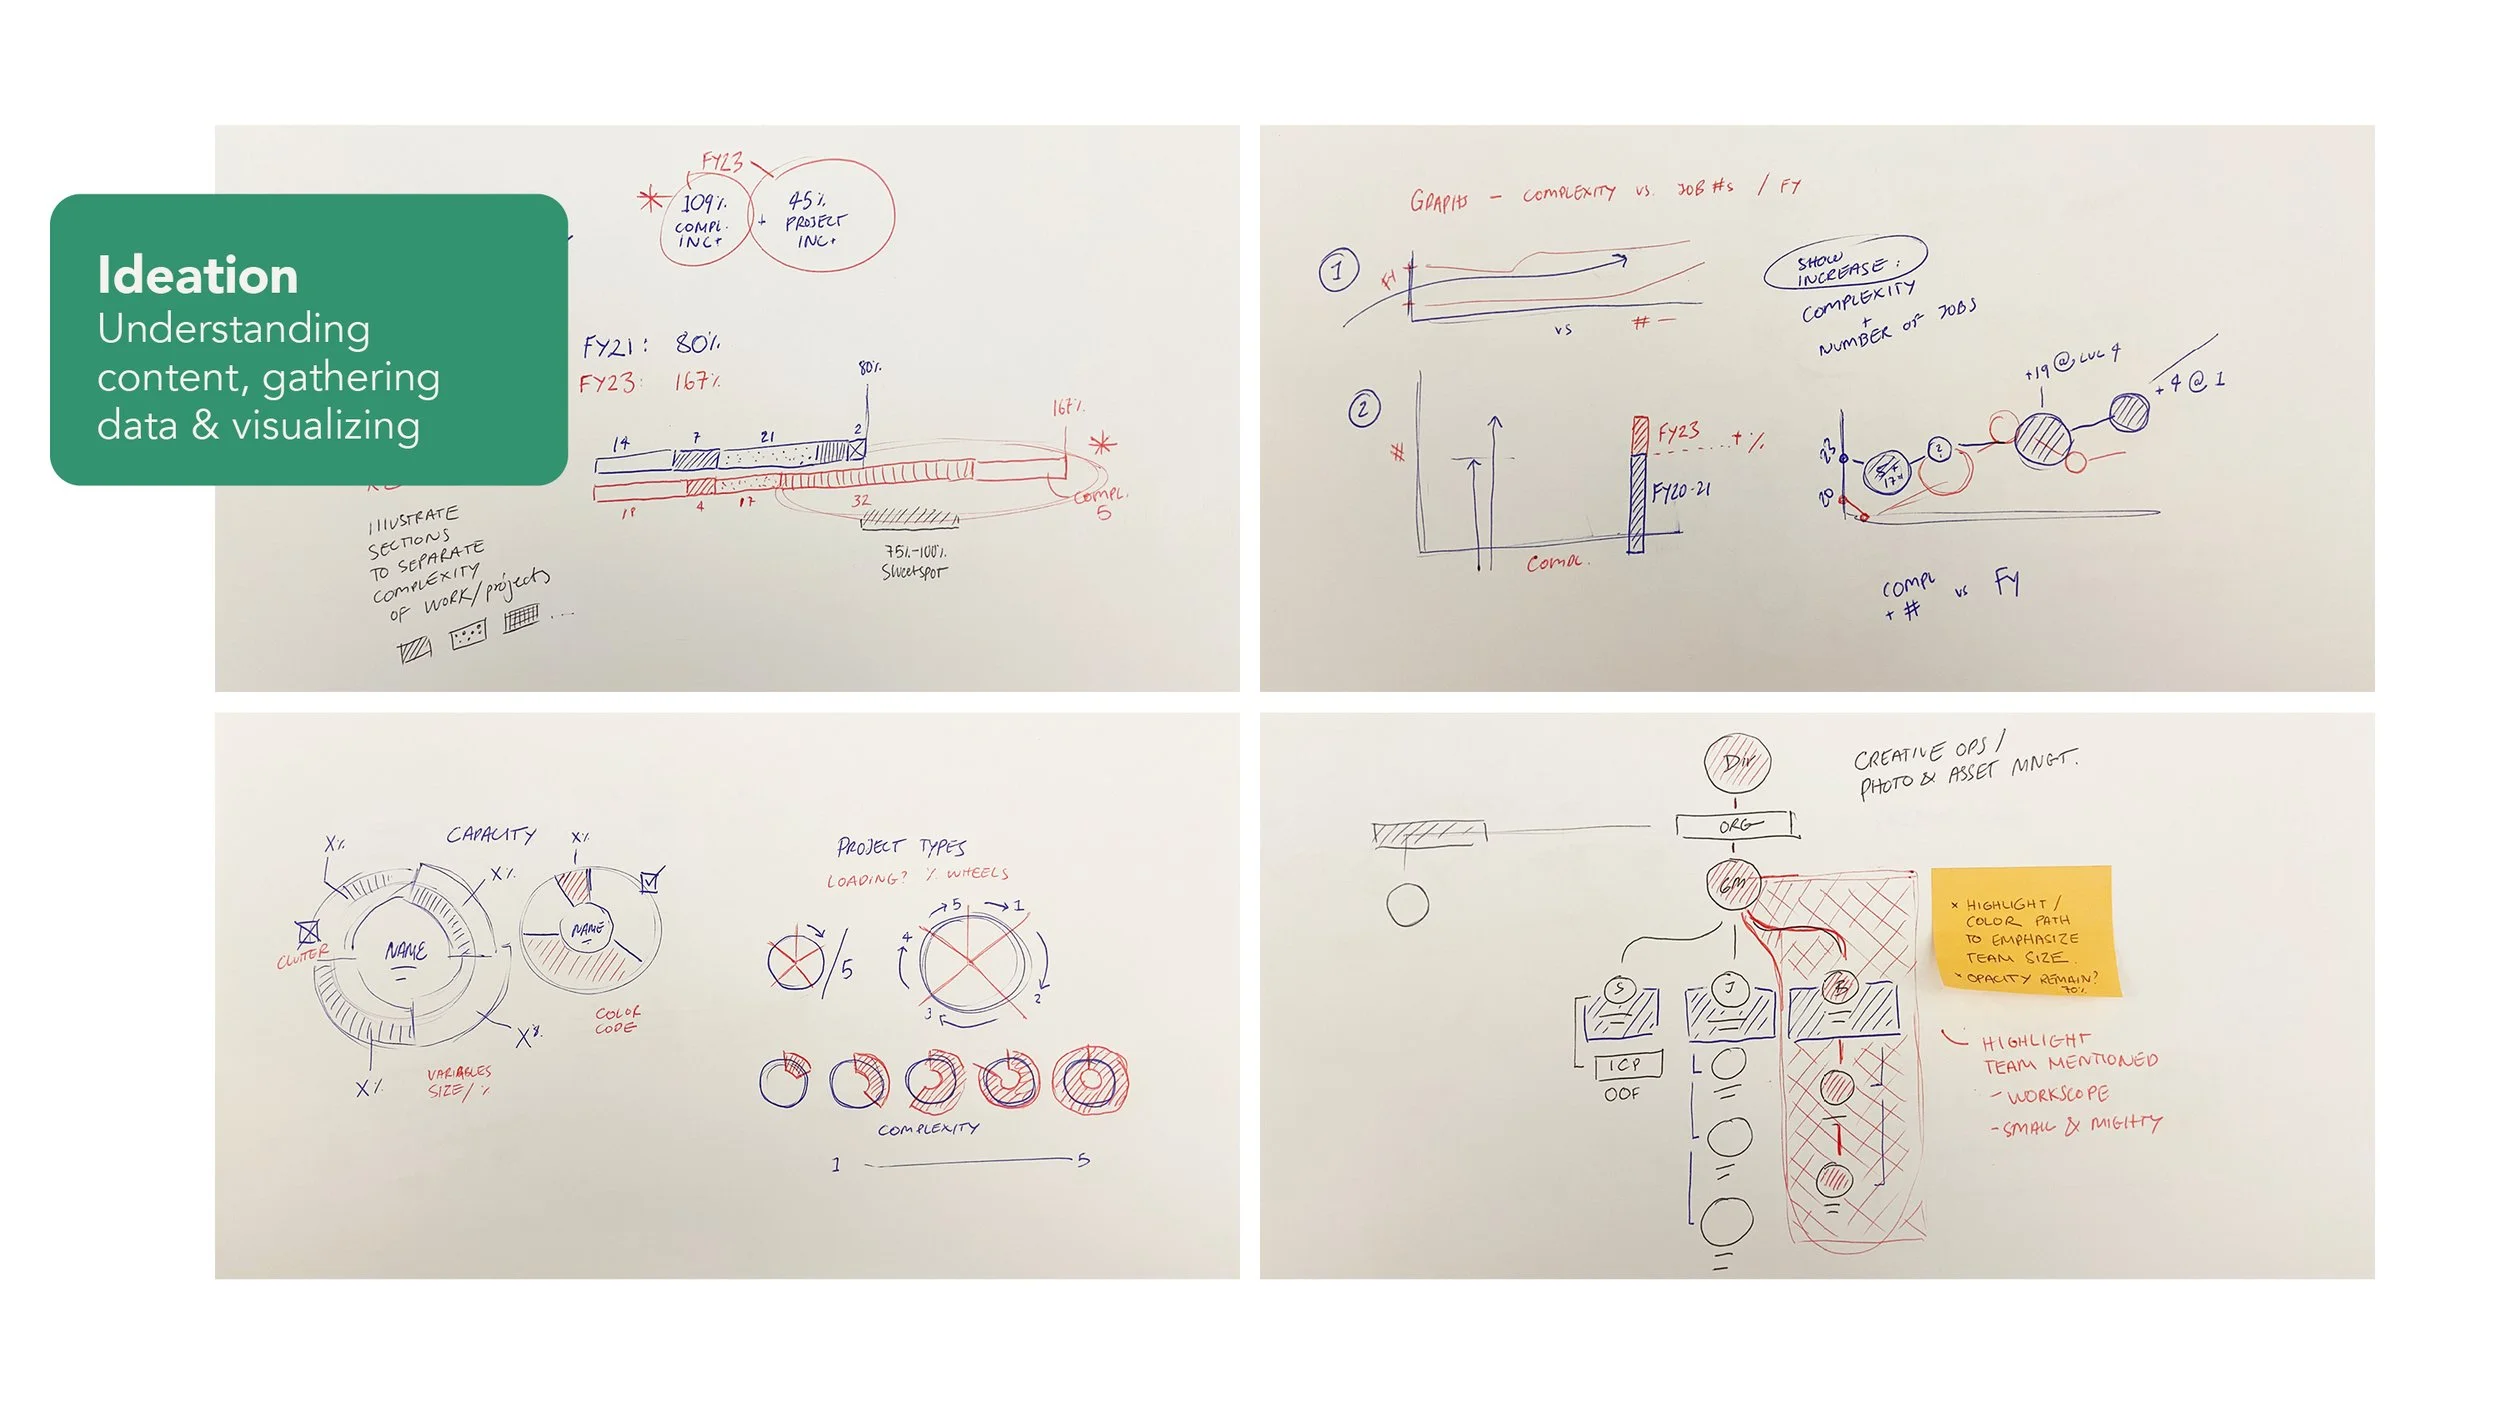 Ideation
Understanding
content, gathering
data & visualizing
FY23
109%
COMPL.
INC+
+
45%
PROJECT
INC+
FY21: 80%
FY23: 167%
80%
167%
14
7
21
2
18
4
17
32
COMPL.
5
75%-100%
SWEETSPOT
ILLUSTRATE
SECTIONS
TO SEPARATE
COMPLEXITY
OF WORK/projects
...
GRAPHS - COMPLEXITY VS. JOB #s / FY
1
vs
# -
SHOW
INCREASE:
COMPLEXITY
+
NUMBER OF JOBS
2
#
FY23
+%
FY20-21
COMPL.
+19 @ LVL 4
+ 4 @ 1
23
20
2
COMPL
+ #
vs
FY
CAPACITY
X%
X%
X%
X%
X%
NAME
NAME
CLUTTER
COLOR
CODE
VARIABLES
SIZE/%
PROJECT TYPES
LOADING? % WHEELS
/5
5
1
2
3
4
COMPLEXITY
1
5
Dir
ORG
GM
CREATIVE OPS/
PHOTO & ASSET MNGT.
S
J
B
ICP
OOF
x HIGHLIGHT/
COLOR PATH
TO EMPHASIZE
TEAM SIZE.
x OPACITY REMAIN?
70%
HIGHLIGHT
TEAM MENTIONED
- WORKSCOPE
- SMALL & MIGHTY